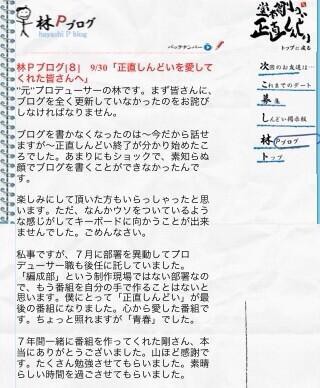 林Pブログ
hayashi P blog
バックナンバー
堂本剛の正直しんどい
トップに戻る
林Pブログ[8] 9/30「正直しんどいを愛して
くれた皆さんへ」
"元"プロデューサーの林です。まず皆さんに、
ブログを全く更新していなかったのをお詫び
しなければなりません。
ブログを書かなくなったのは〜今だから話せ
ますが〜正直しんどい終了が分かり始めたこ
ろでした。あまりにもショックで、素知らぬ
顔でブログを書くことができなかったんで
す。
楽しみにして頂いた方もいらっしゃったと思
います。ただ、なんかウソをついているよう
な感じがしてキーボードに向かうことが出来
ませんでした。ごめんなさい。
私事ですが、7月に部署を異動してプロ
デューサー職も後任に託していました。
「編成部」という制作現場ではない部署なの
で、もう番組を自分の手で作ることはないと
思います。僕にとって「正直しんどい」が最
後の番組になりました。心から愛した番組で
す。ちょっと照れますが「青春」でした。
7年間一緒に番組を作ってくれた剛さん、本
当にありがとうございました。山ほど感謝で
す。たくさん勉強させてもらいました。素晴
らしい時間を過ごさせてもらいました。
次回のお友達は…
これまでのデート
募集
しんどい掲示板
林Pブログ
トップ